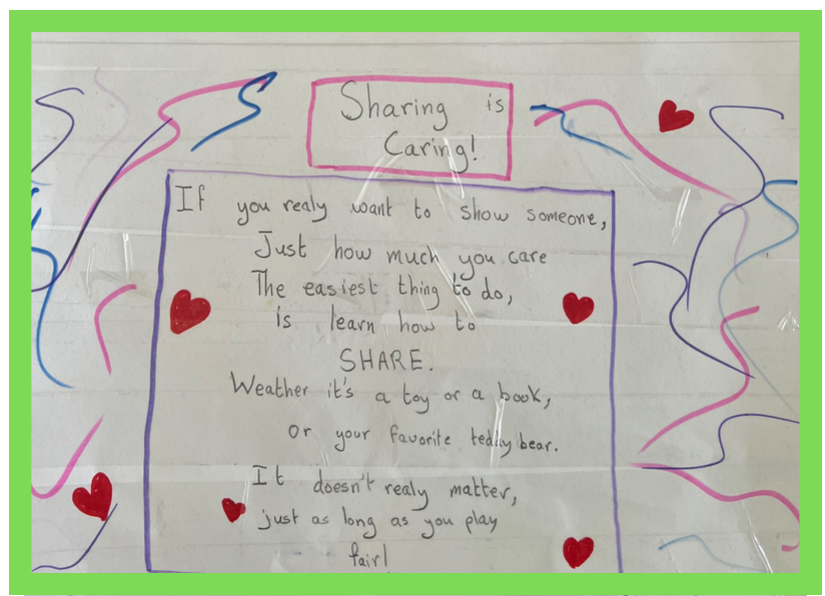 Sharing is
Caring!
If you realy want to show someone,
Just how much you care
The easiest thing to do,
is learn how to
SHARE.
Weather it's a toy or a book,
or your favorite teddy bear.
It doesn't realy matter,
just as long as you play
fair!